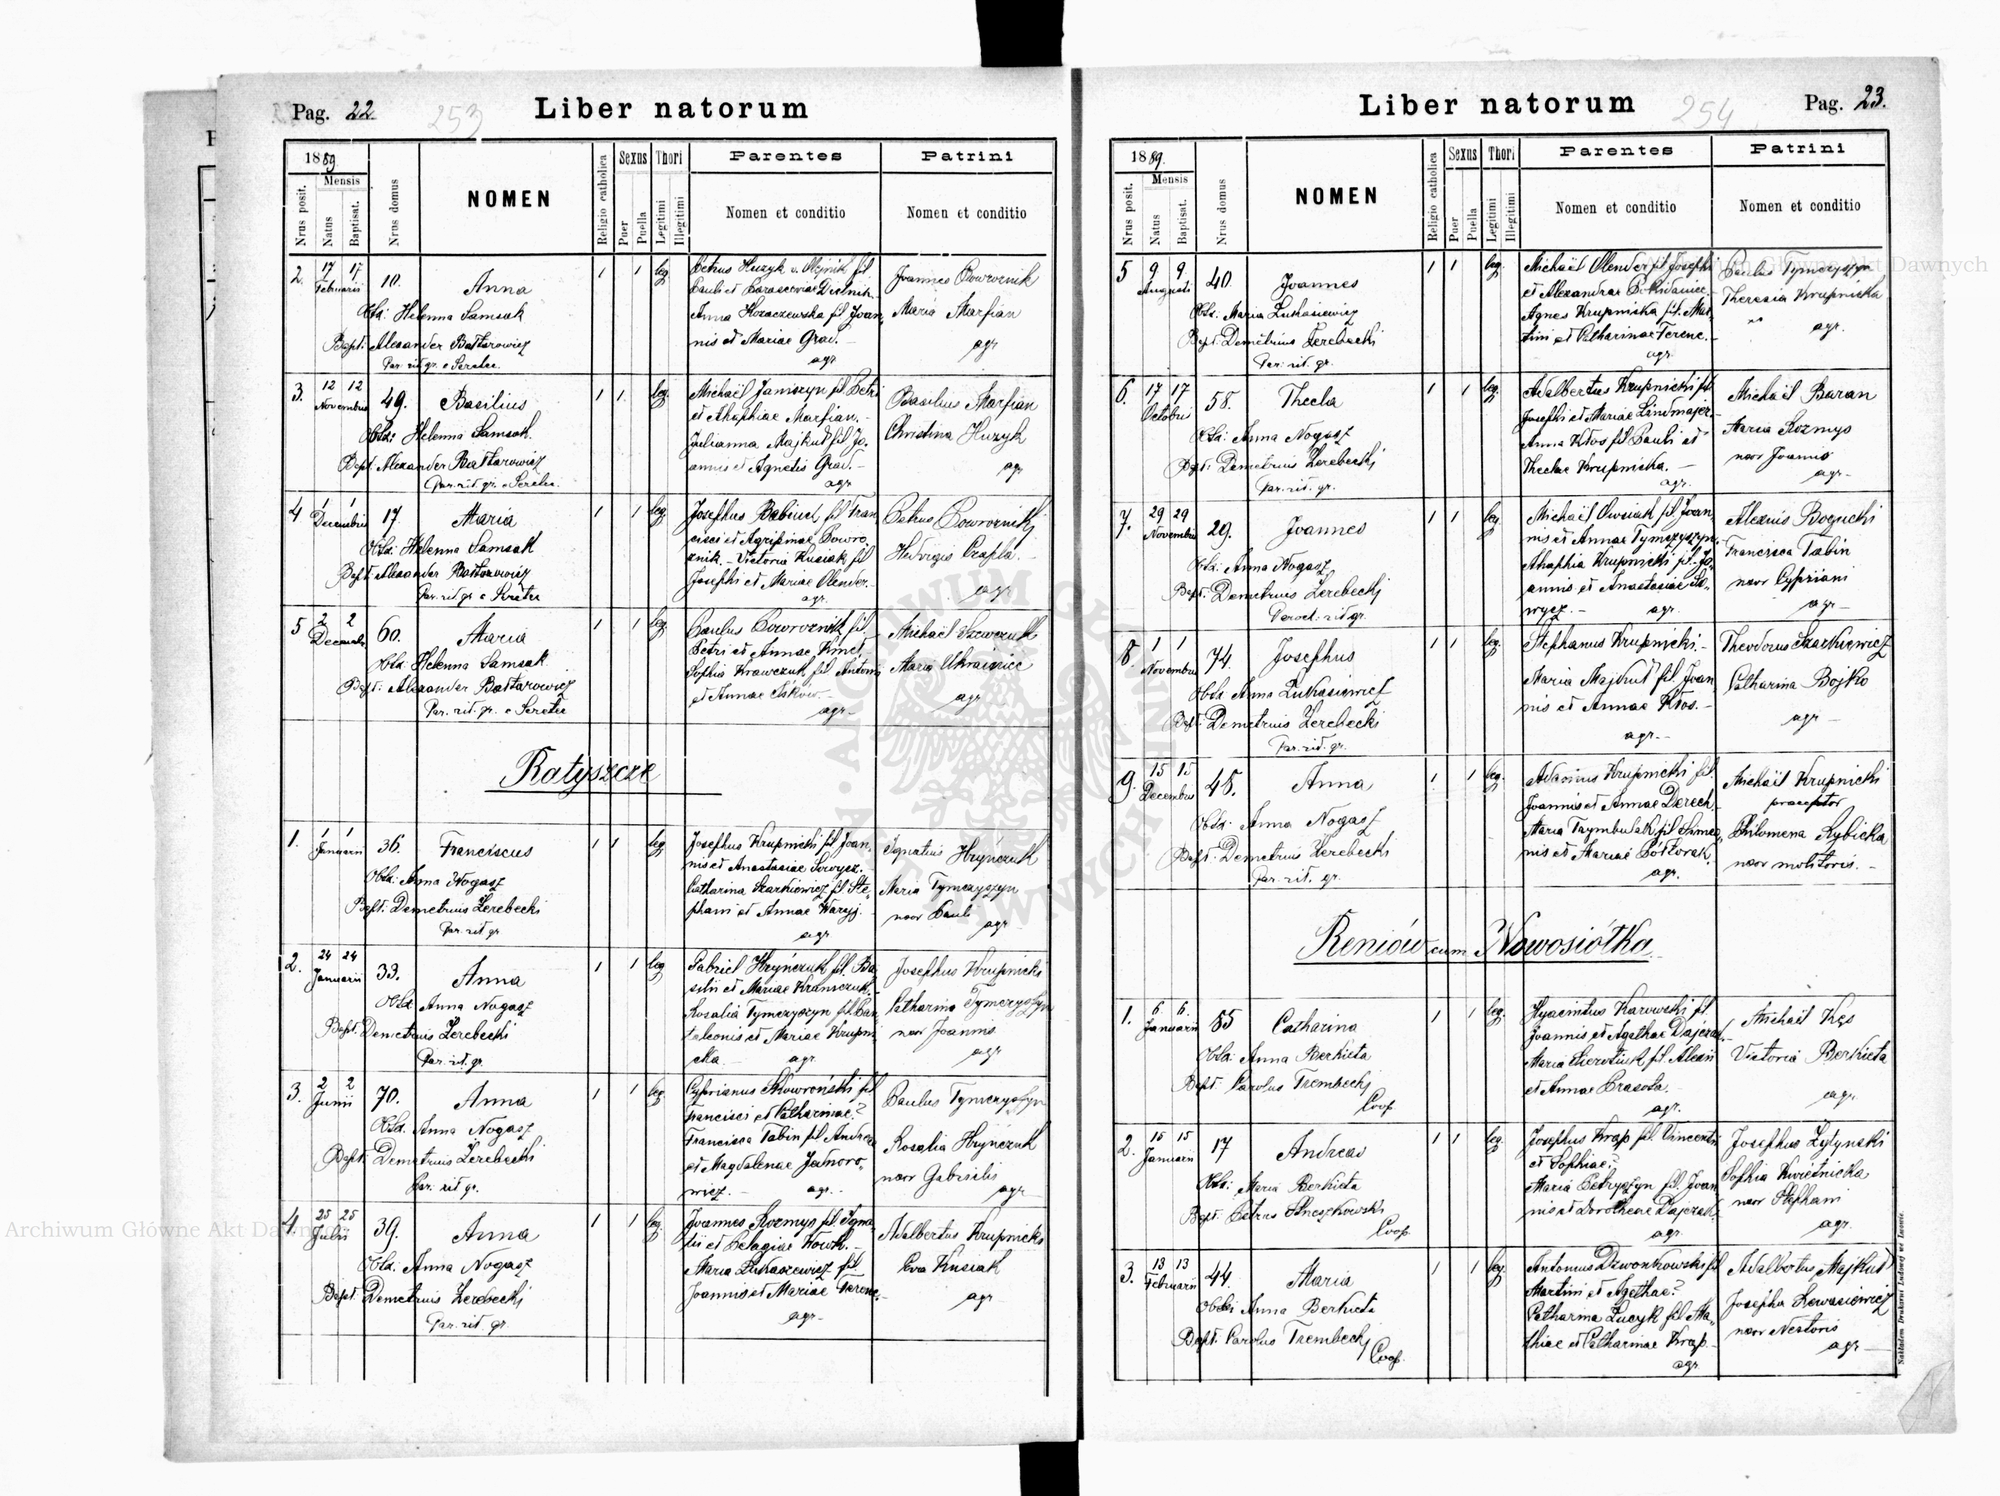 Pag. 22.
253
Liber natorum
1889.
Mensis
Nrus posit.
Natus
Baptisat.
Nrus domus
NOMEN
Religio catholica
Sexus
Puer
Puella
Thori
Legitimi
Illegitimi
Parentes
Nomen et conditio
Patrini
Nomen et conditio
2. 17 17 Februarii 10. Anna 1 1 leg.
Obst: Helenna Samsak
Bapt: Alexander Battarowicz
Par. rit. gr. e Seretec
Petrus Huzyk v. Olejnik fil.
Pauli et Parasceviae
Anna Kozaczewska fil. Joan,
nis et Mariae Grad.
agr
Joannes Poworoznik
Maria Marfian
agr
3. 12 12 Novembris 49. Basilius 1 1. leg.
Obst: Helenna Samsak.
Bapt: Alexander Battarowicz
Par. rit. gr. e Seretec
Michaël Janiszyn fil. Petri
et Ahaphiae Marfian.-
Julianna Majkut fil Jo,
annis et Agnetis Grad.-
agr
Basilius Marfian
Christina Huzyk
agr
4 1 1 Decembris 17. Maria 1 1 leg.
Obst: Helenna Samsak
Bapt: Alexander Battarowicz
Par. rit. gr e Seretec
Josephus Babiuch fil Fran
cisci et Agripinae Poworo,
znik.- Victoria Kusiak fil
Josephi et Mariae Olender.-
agr.
Petrus Poworoznik
Hedvigis Czapla.
agr
5 2 2 Decembris 60. Maria 1 1 leg.
Obst. Helenna Samsak
Bapt: Alexander Battarowicz
Par. rit. gr. e Seretec
Paulus Poworoznik fil.
Petri et Annae Kincl.-
Sophia Krawczuk fil Antonii
et Annae
agr-
Michaël Szewczuk
Maria Ukrainiec
agr-
Ratyszcze
1. 1 1 Januarii 36. Franciscus 1 1 leg
Obst. Anna Nogasz
Bapt. Demetrius Zerebecki
Par. rit gr
Josephus Krupnicki fil Joan,
nis et Anastasiae Sowycz.
Catharina Szarkiewicz fil Ste,
phani et Annae Waryj.
agr
Ignatius Hryńczuk
Maria Tymczyszyn
uxor Pauli
agr
2. 24 24 Januarii 33. Anna 1 1 leg
Obst Anna Nogasz
Bapt. Demetrius Zerebecki
Par. rit. gr.
Gabriel Hryńczuk fil. Ba
silii et Mariae Krawczuk.
Rosalia Tymczyszyn fil. Pan
taleonis et Mariae Krupni
cka - agr.
Josephus Krupnicki
Catharina Tymczyszyn
uxor Joannis
agr
3. 2 2 Junii 70. Anna 1 1 leg
Obst. Anna Nogasz
Bapt. Demetrius Zerebecki
Par. rit gr.
Cyprianus Skowroński fil
Francisci et Catharinae?
Francisca Tabin fil Andreae
et Magdalenae Jadnoro,
wicz. - agr.-
Paulus Tymczyszyn
Rosalia Hryńczuk
uxor Gabrielis
agr
4. 25 25 Julii 39. Anna 1 1 leg.
Obst. Anna Nogasz
Bapt. Demetrius Zerebecki
Par. rit. gr.
Joannes Rozmys fil Igna,
tii et Pelagiae Wowk.-
Maria Łukaszewicz fil.
Joannis et Mariae Ferenc.
agr-
Adalbertus Krupnicki
Eva Kusiak
agr
Liber natorum
254
Pag. 23.
1889.
Mensis
Nrus posit.
Natus
Baptisat.
Nrus domus
NOMEN
Religio catholica
Sexus
Puer
Puella
Thori
Legitimi
Illegitimi
Parentes
Nomen et conditio
Patrini
Nomen et conditio
5 9 9. Augusti 40. Joannes 1 1 leg.
Obst. Maria Łukasiewicz
Bapt: Demetrius Zerebecki
Par. rit. gr.
Michaël Olender fil Josephi
et Alexandrae
Agnes Krupnicka fil. Mar
tini et Catharinae Ferenc.-
agr.
Paulus Tymczyszyn
Theresia Krupnicka
agr.
6. 17 17 Octobris 58. Thecla 1 1 leg.
Obst. Anna Nogasz
Bapt: Demetrius Zerebecki
Par. rit. gr.
Adalbertus Krupnicki fil.
Josephi et Mariae Lindmajer.
Anna Kłos fil Pauli et
Theclae Krupnicka. -
agr.
Michaël Baran
Maria Rozmys
uxor Joannis
agr-
7. 29 29 Novembris 29. Joannes 1 1 leg.
Obst. Anna Nogasz
Bapt. Demetrius Zerebecki
Paroch. rit gr.
Michaël Owsiak fil. Joan,
nis et Annae Tymczyszyn.
Ahaphia Krupnicki fil. Jo,
annis et Anastasiae So,
wycz. - agr.
Alexius Bogucki
Francisca Tabin
uxor Cypriani
agr-
8. 1 1 Novembris 74. Josephus 1 1 leg.
Obst Anna Łukasiewicz
Bapt. Demetrius Zerebecki
Par. rit. gr.
Stephanus Krupnicki.-
Maria Majkut fil Joan
nis et Annae Kłos.-
agr.-
Theodorus Szarkiewicz
Catharina Bojko
agr-
9. 15 15 Decembris 48. Anna 1 1 leg.
Obst. Anna Nogasz
Bapt: Demetrius Zerebecki
Par. rit. gr.
Adamus Krupnicki fil.
Joannis et Annae Derech
Maria Taymbulak fil Simeo,
nis et Mariae Półtorak.
agr.
Michaël Krupnicki
praeceptor
Philomena Rybicka
uxor molitoris.-
Reniów cum Nowosiółka.
1. 6 6. Januarii 55 Catharina 1 1 leg.
Obst: Anna Berkieta
Bapt: Carolus Trembecki
Coop.
Hyacintus Karowski fil.
Joannis et Agathae Dajczak.-
Maria fil Alexii
et Annae Crasota.-
agr.
Michaël Kęs
Victoria Berkieta
agr.
2. 15 15 Januarii 17 Andreas 1 1 leg.
Obst: Maria Berkieta
Bapt: Petrus
Coop.
Josephus Krap fil Vincentii
et Sophiae?
Maria Petryszyn fil. Joan
nis et Dorotheae Dajczak.
agr.
Josephus Zytynski
Sophia Kwietnicka
uxor Stephani
agr.
3. 13 13 Februarii 44. Maria 1 1 leg
Obst: Anna Berkieta
Bapt. Carolus Trembecki
Coop.
Antonius Dzwonkowski fil
Martini et Agathae?
Catharina Łucyk fil Ma,
thiae et Catharinae Krap.-
agr
Adalbertus Majkut
Josepha Lewasiewicz
uxor Nestoris
agr-
Nakładem Drukarni Ludowej we Lwowie.
Archiwum Główne Akt Dawnych
Archiwum Główne Akt Dawnych
ARCHIWUM GŁÓWNE AKT DAWNYCH